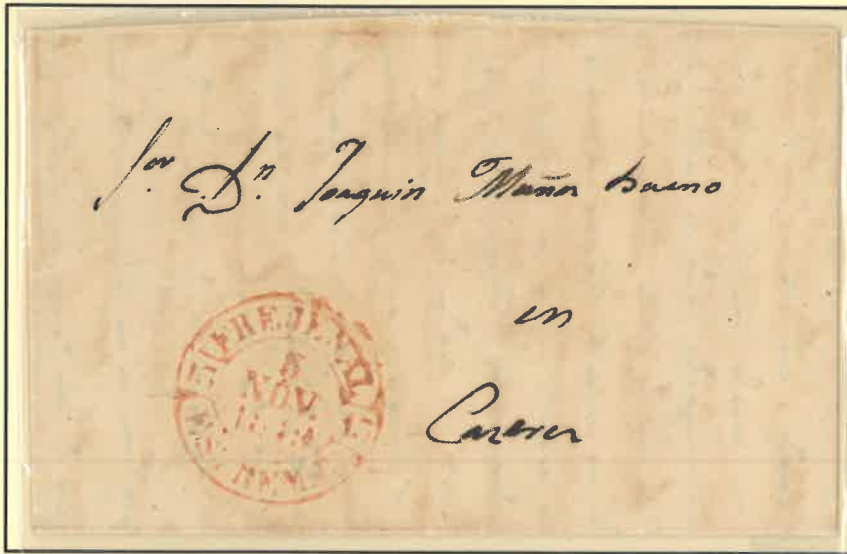 Sor. Dn. Joaquin Muñoz bueno
en
Cazeres
FREJENAL
5
NOV.